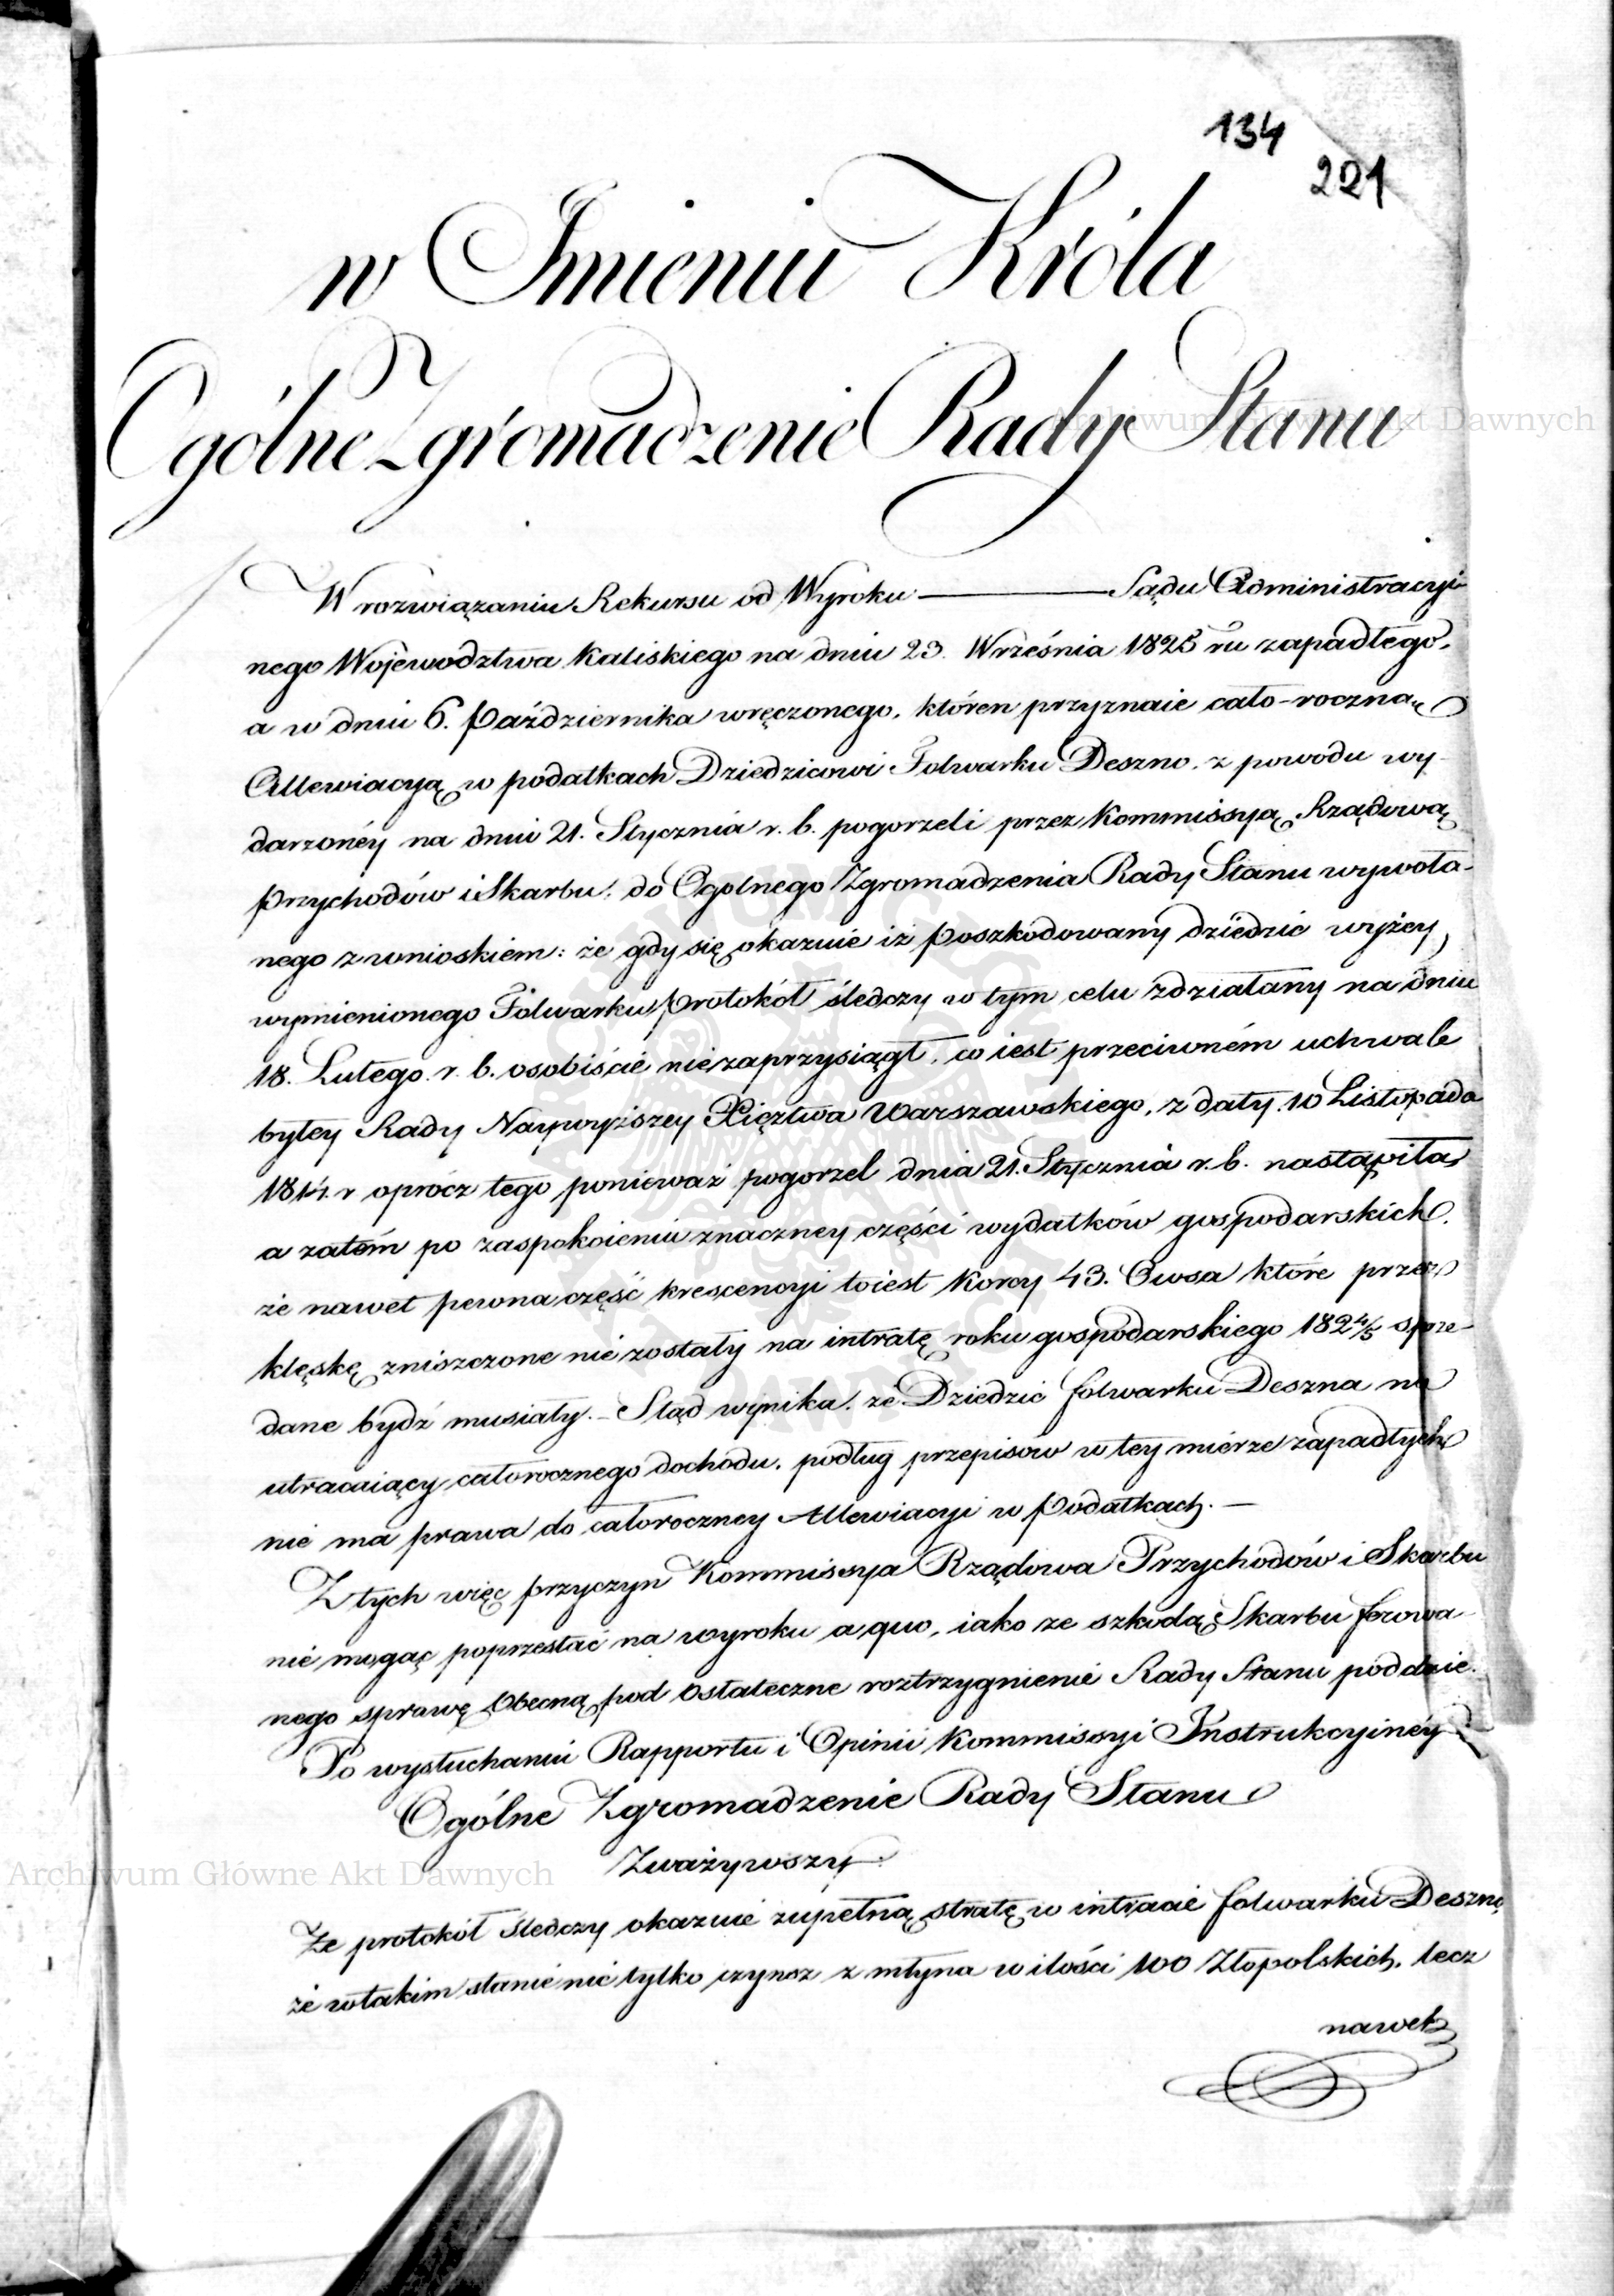 134
221
w Imieniu Króla
Ogólne Zgromadzenie Rady Stanu
W rozwiązaniu Rekursu od Wyroku ——— Sądu Administracyi-
nego Województwa Kaliskiego na dniu 23. Września 1825 ru zapadłego,
a w dniu 6. Października wręczonego, któren przyznaie cało-roczną
Allewiacyą w podatkach Dziedzicowi Folwarku Deszno, z powodu wy-
darzonéy na dniu 21. Stycznia r. b. pogorzeli przez Kommissyą Rządową
Przychodów i Skarbu, do Ogolnego Zgromadzenia Rady Stanu wywoła-
nego z wnioskiem: że gdy się okazuie iż Poszkodowany dziedzic wyżey
wymienionego Folwarku Protokół śledczy w tym celu zdziałany na dniu
18. Lutego r. b. osobiście niezaprzysiągł, co iest przeciwném uchwale
byłey Rady Naywyższey Xięztwa Warszawskiego, z daty 10 Listopada
1814. r oprócz tego ponieważ pogorzel dnia 21. Stycznia r. b. nastąpiła
a zatém po zaspokoieniu znaczney części wydatków gospodarskich,
że nawet pewna część krescencyi toiest Korcy 43. Owsa które przez
klęskę zniszczone nie zostały na intratę roku gospodarskiego 1824/5 sprze-
dane bydź musiały. – Stąd wynika, że Dziedzic folwarku Deszna nie
utracaiący całorocznego dochodu, podług przepisów w tey mierze zapadłych
nie ma prawa do całoroczney Allewiacyi w Podatkach. —
Z tych więc przyczyn Kommissya Rządowa Przychodów i Skarbu
nie mogąc poprzestać na wyroku a quo, iako ze szkodą Skarbu ferowa-
nego sprawę Obecną pod Ostateczne roztrzygnienie Rady Stanu poddaie.
Po wysłuchaniu Rapportu i Opinii Kommissyi Instrukcyinéy
Ogólne Zgromadzenie Rady Stanu
Zważywszy
Że protokół śledczy okazuie zupełną stratę w intracie folwarku Deszno
że w takim stanie nie tylko czynsz z młyna w ilości 100 Złopolskich, lecz
nawet
Archiwum Główne Akt Dawnych
Archiwum Główne Akt Dawnych